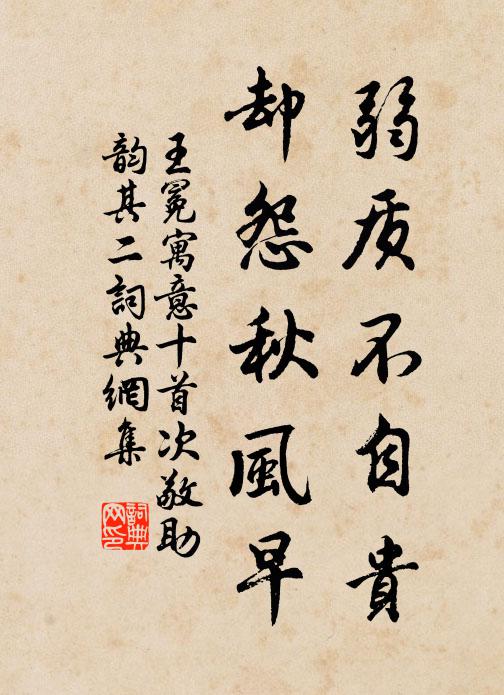 弱质不自貴
却怨秋風早
王冕寓意十首次敬助
韵其二詞典網集
詞典
网印